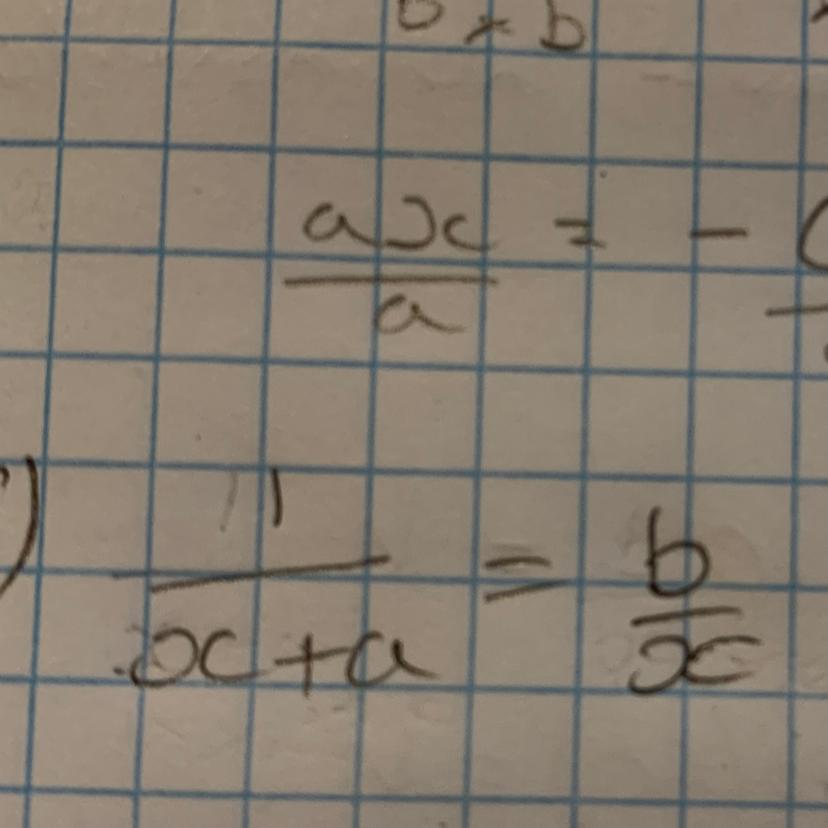 × b
ax/a = -
) 1/(x+a) = b/x